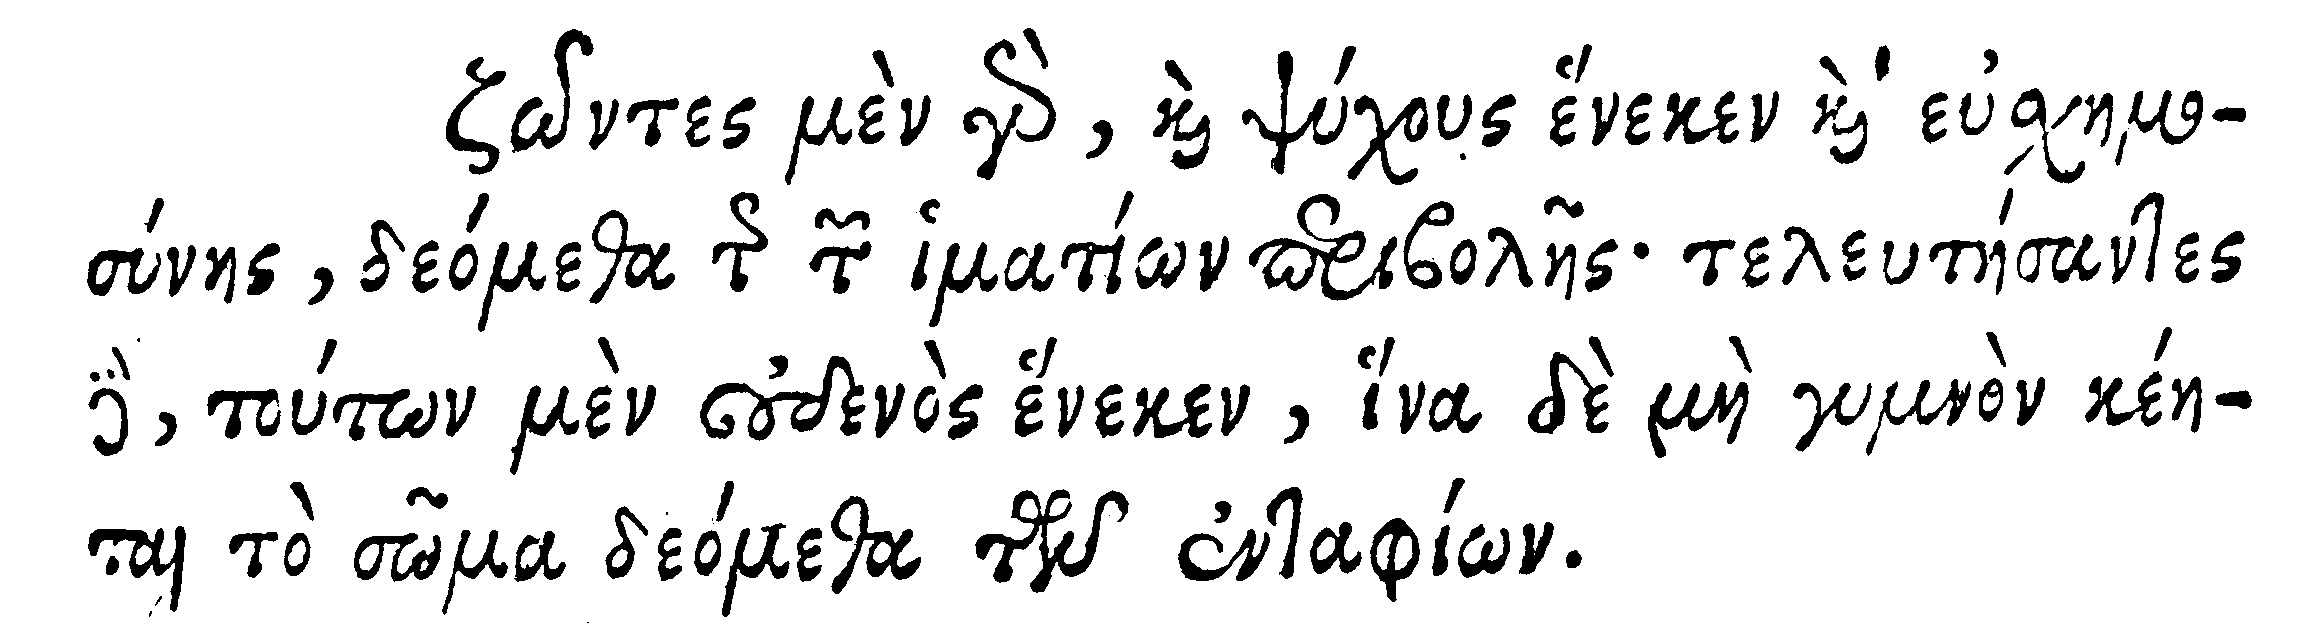 ζῶντες μὲν γὰρ, καὶ ψύχους ἕνεκεν καὶ εὐσχημο-
σύνης, δεόμεθα τῆς τῶν ἱματίων περιβολῆς· τελευτήσαντες
δὲ, τούτων μὲν οὐδενὸς ἕνεκεν, ἵνα δὲ μὴ γυμνὸν κέη-
ται τὸ σῶμα δεόμεθα τῶν ἐνταφίων.